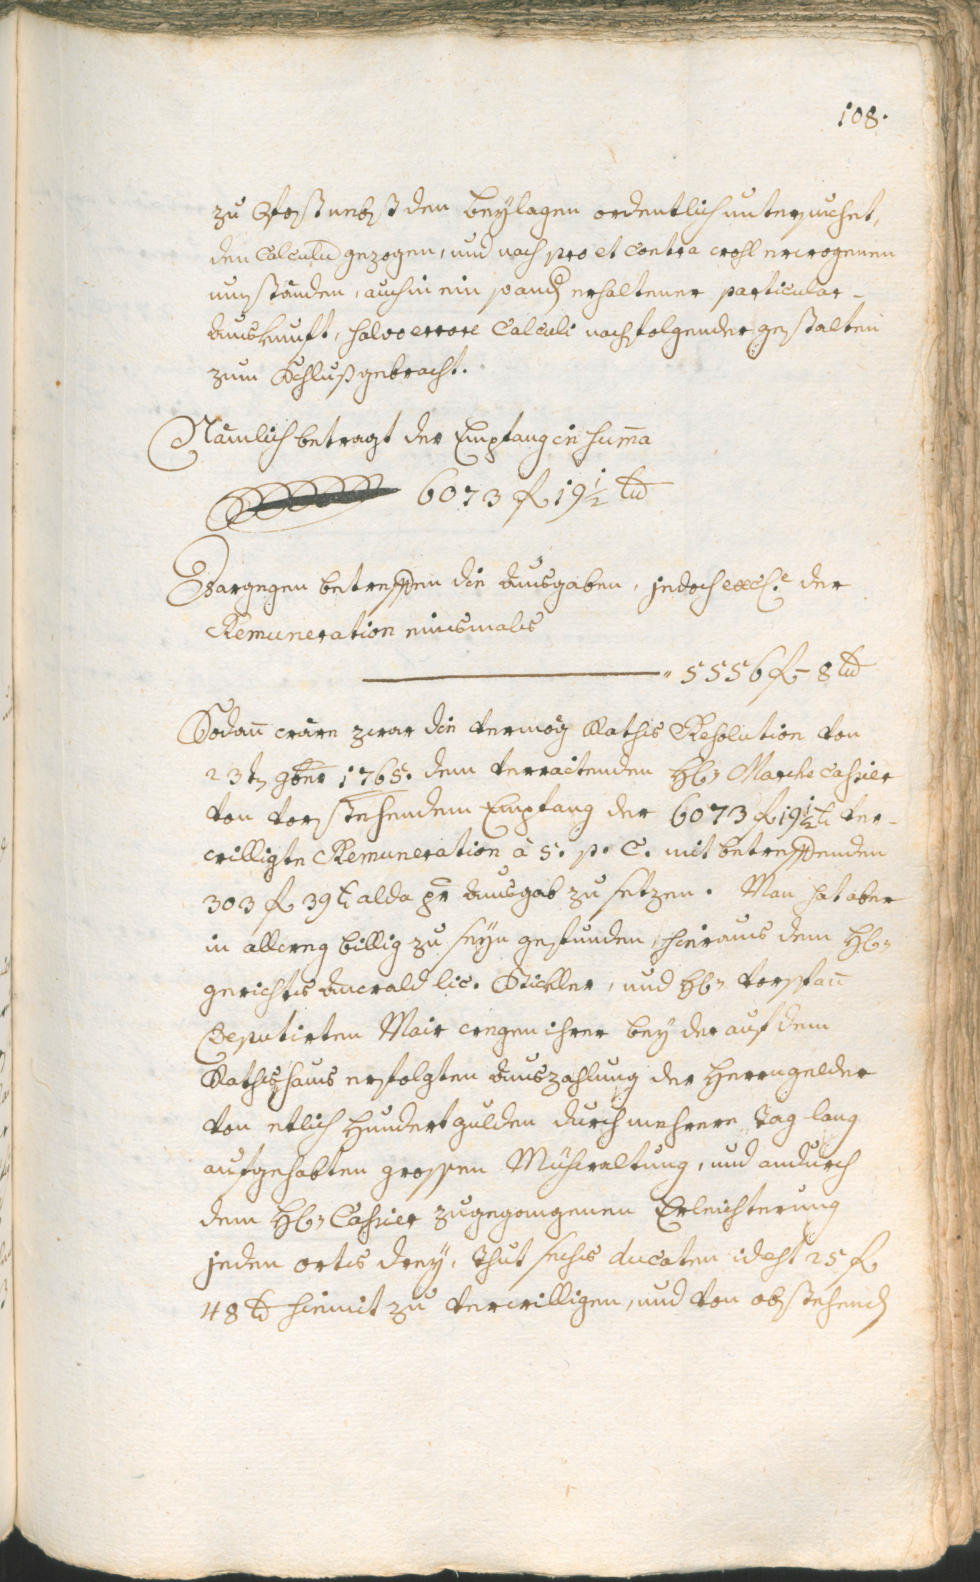 108.
zu Post nebst den beylagen ordentlich untersuchet,
den Calculũ gezogen, und nach pro et contra wohl erwogenen
umständen, auch in ein so andʒ erhaltener particular-
auskunft, salvo errore Calculi nachfolgender gestalten
zum Schluß gebracht.
Nämlich betragt der Empfang in Sum̄a
6073 f 19½ xr
Dargegen betreffen die ausgaben, jedoch excl.e der
Remuneration einsmals
" 5556 f - 8 xr
Sodan̄ wäre zwar die vermög Raths Resolution von
23tn 9ber 1765. dem verraitenden Hl. Marche Cassier
von vorstehendem Empfang der 6073 f 19½ xr ver-
willigte Remuneration à 5. p. C. mit betreffenden
303 f 39 xr alda pr ausgab zu setzen. Man hat aber
in allweg billig zu seyn gefunden, hieraus dem Hl.
gerichts anwald lic. Stickler, und Hl.
Deputirten Mair wegen ihrer bey der auf dem
Rathshaus erfolgten auszahlung der Herrngelder
von etlich Hundert gulden durch mehrere Tag lang
aufgehabten grossen Mühwaltung, und andurch
dem Hl. Cassier zugegangenen Erleichterung
jeden orts drey, thut sechs ducaten id est 25 f
48 xr hiemit zu verwilligen, und von obstehendʒ